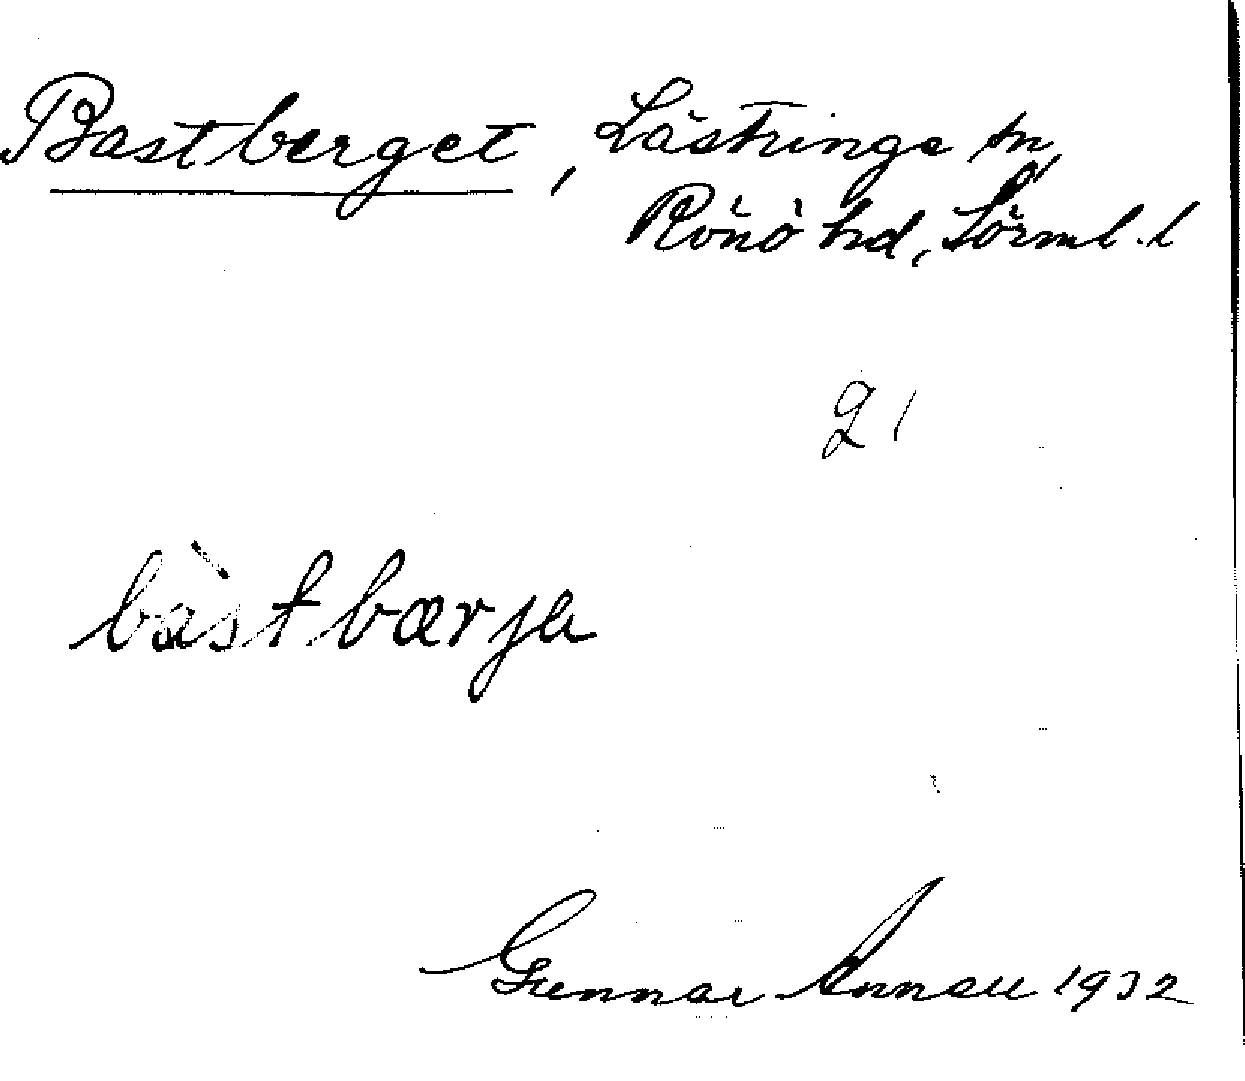 Bastberget, Lästringe sn,
Rönö hd, Sörml. l
21
bàstbærja
Gunnar
1932